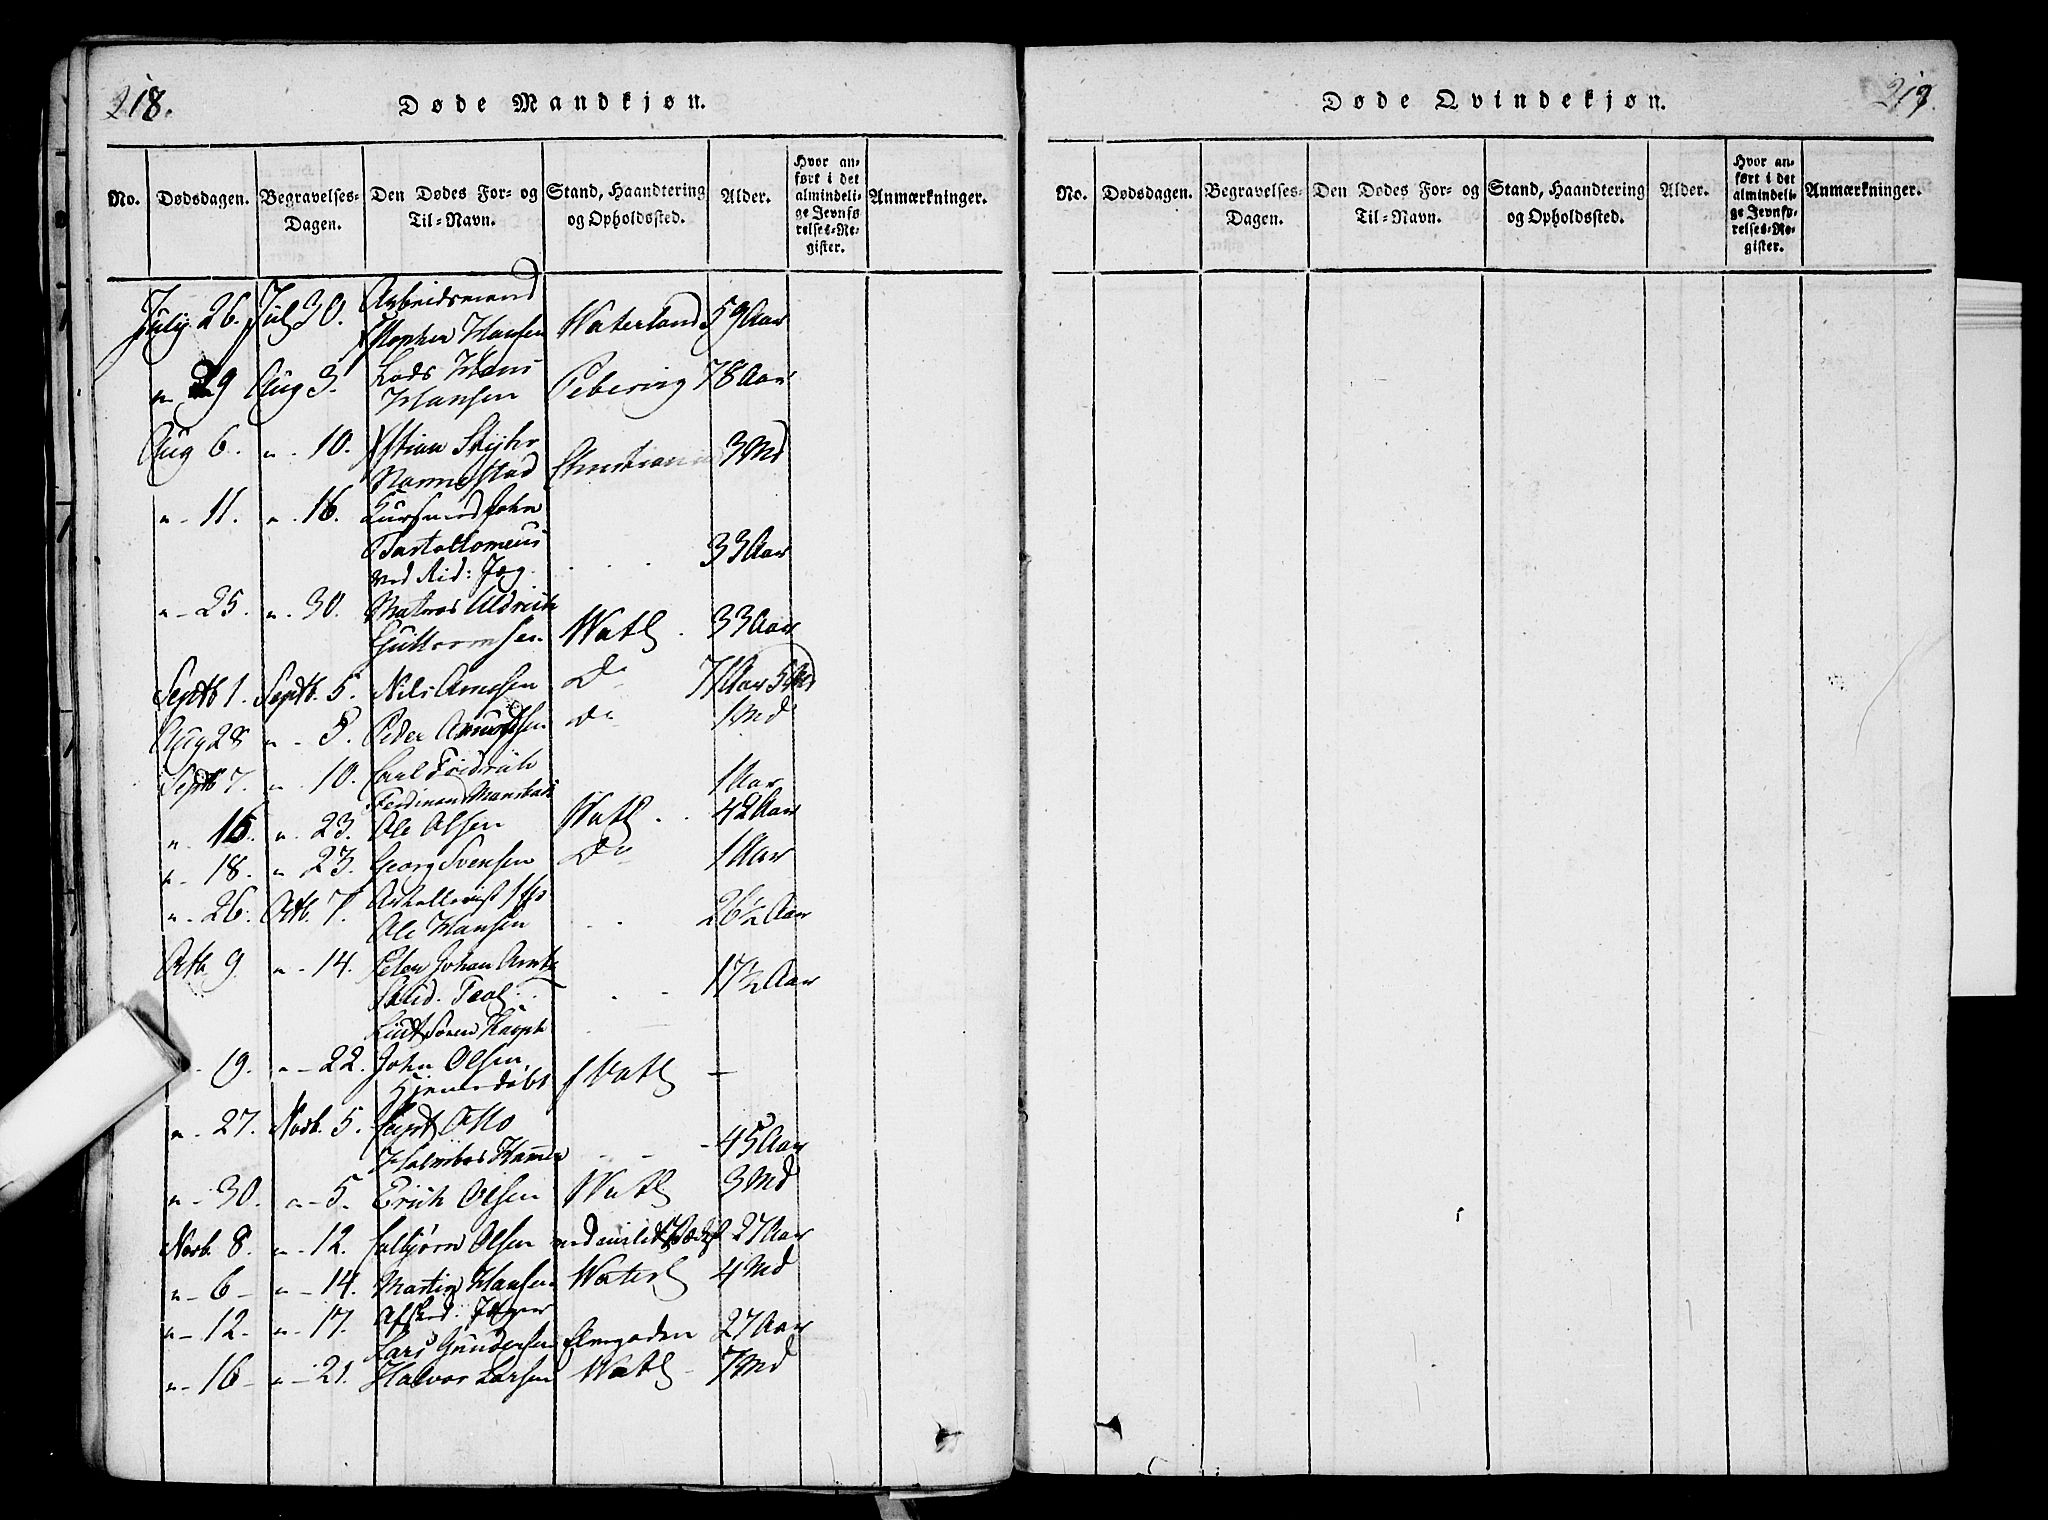 218.
Døde Mandkjøn.
No. Dødsdagen. Begravelses-Dagen. Den Dødes For- og Til-Navn. Stand, Haandtering og Opholdssted. Alder. Hvor anført i det almindelige Jevnførelses-Register. Anmærkninger.
July. 26. Jul 30. Arbeidsmand
Hansen Waterland 59 Aar
" 29 Aug 3. Hans
Hansen Pebering 78 Aar
Aug 6. " 10.
Christiania 3 Md
" 11. " 16. John
Bartollomeus 33 Aar
ved Rid: Jæg.
" 25. " 30. Matros Uldrich
Guttormsen Watl. 33 Aar
Septb 1. Septb. 5. Nils Arnesen Do 71 Aar 5 Md
Aug 28 " 5. Peder Do 1 Md
Septb 7. " 10. Carl Fridrich
Ferdinan 1 Aar
" 16. " 23. Ole Olsen Watl. 42 Aar
" 18. " 23. Georg Svensen Do 1 Aar
" 26. Octb. 7.
Ole Hansen 26 1/2 Aar
Octb 9. " 14. Peter Johan
17 1/2 Aar
Liut Søren
" 19. " 22. John Olsen
Watl —
" 27. Novb. 5. Capt Otto
45 Aar
" 30. " 5. Erich Olsen Watl 3 Md
Novb. 8. " 12. Olsen 27 Aar
" 6 " 14. Martin Hansen Waterl 4 Md
" 12. " 17. Afsked. Jæger
Lars Gundersen 27 Aar
" 16 " 21. Halvor Larsen Watl 7 Md
219.
Døde Qvindekjøn.
No. Dødsdagen. Begravelses-Dagen. Den Dødes For- og Til-Navn. Stand, Haandtering og Opholdssted. Alder. Hvor anført i det almindelige Jevnførelses-Register. Anmærkninger.